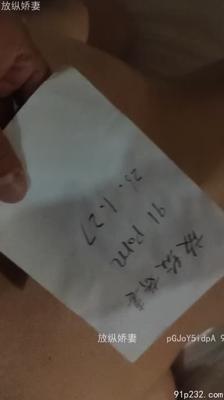 放纵娇妻
放纵娇妻
91 Porn
25.1.27
放纵娇妻
pGJoY5idpA 9
91p232.com